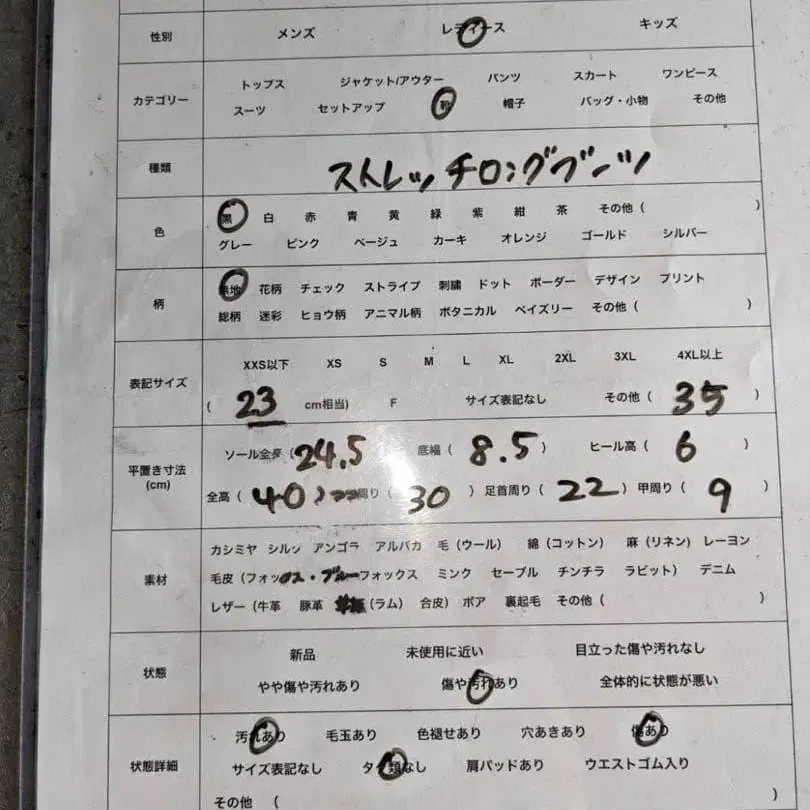 性別 メンズ レディース キッズ
カテゴリー
トップス ジャケット/アウター パンツ スカート ワンピース
スーツ セットアップ 靴 帽子 バッグ・小物 その他
種類 ストレッチロングブーツ
色
黒 白 赤 青 黄 緑 紫 紺 茶 その他 ( )
グレー ピンク ベージュ カーキ オレンジ ゴールド シルバー
柄
無地 花柄 チェック ストライプ 刺繍 ドット ボーダー デザイン プリント
総柄 迷彩 ヒョウ柄 アニマル柄 ボタニカル ペイズリー その他 ( )
表記サイズ
XXS以下 XS S M L XL 2XL 3XL 4XL以上
( 23 cm相当) F サイズ表記なし その他 ( 35 )
平置き寸法
(cm)
ソール全長 ( 24.5 底幅 ( 8.5 ) ヒール高 ( 6 )
全高 ( 40 ) 周り ( 30 ) 足首周り ( 22 ) 甲周り ( 9 )
素材
カシミヤ シルク アンゴラ アルパカ 毛 (ウール) 綿 (コットン) 麻 (リネン) レーヨン
毛皮 (フォックス・ブルーフォックス ミンク セーブル チンチラ ラビット) デニム
レザー (牛革 豚革 (ラム) 合皮) ボア 裏起毛 その他 ( )
状態
新品 未使用に近い 目立った傷や汚れなし
やや傷や汚れあり 傷や汚れあり 全体的に状態が悪い
状態詳細
汚れあり 毛玉あり 色褪せあり 穴あきあり 傷あり
サイズ表記なし タグ類なし 肩パッドあり ウエストゴム入り
その他 ( )